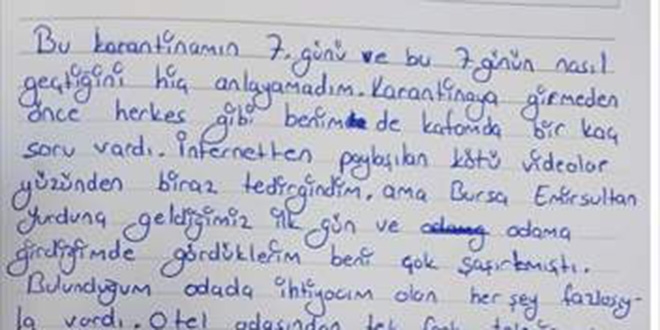 Bu karantinamın 7. günü ve bu 7 günün nasıl
geçtiğini hiç anlayamadım. Karantinaya girmeden
önce herkes gibi benim de kafamda bir kaç
soru vardı. İnternetten paylaşılan kötü videolar
yüzünden biraz tedirgindim. ama Bursa Emirsultan
Yurduna geldiğimiz ilk gün ve odama
girdiğimde gördüklerim beni çok şaşırtmıştı.
Bulunduğum odada ihtiyacım olan her şey fazlasıy-
la vardı. Otel odasından tek farkı